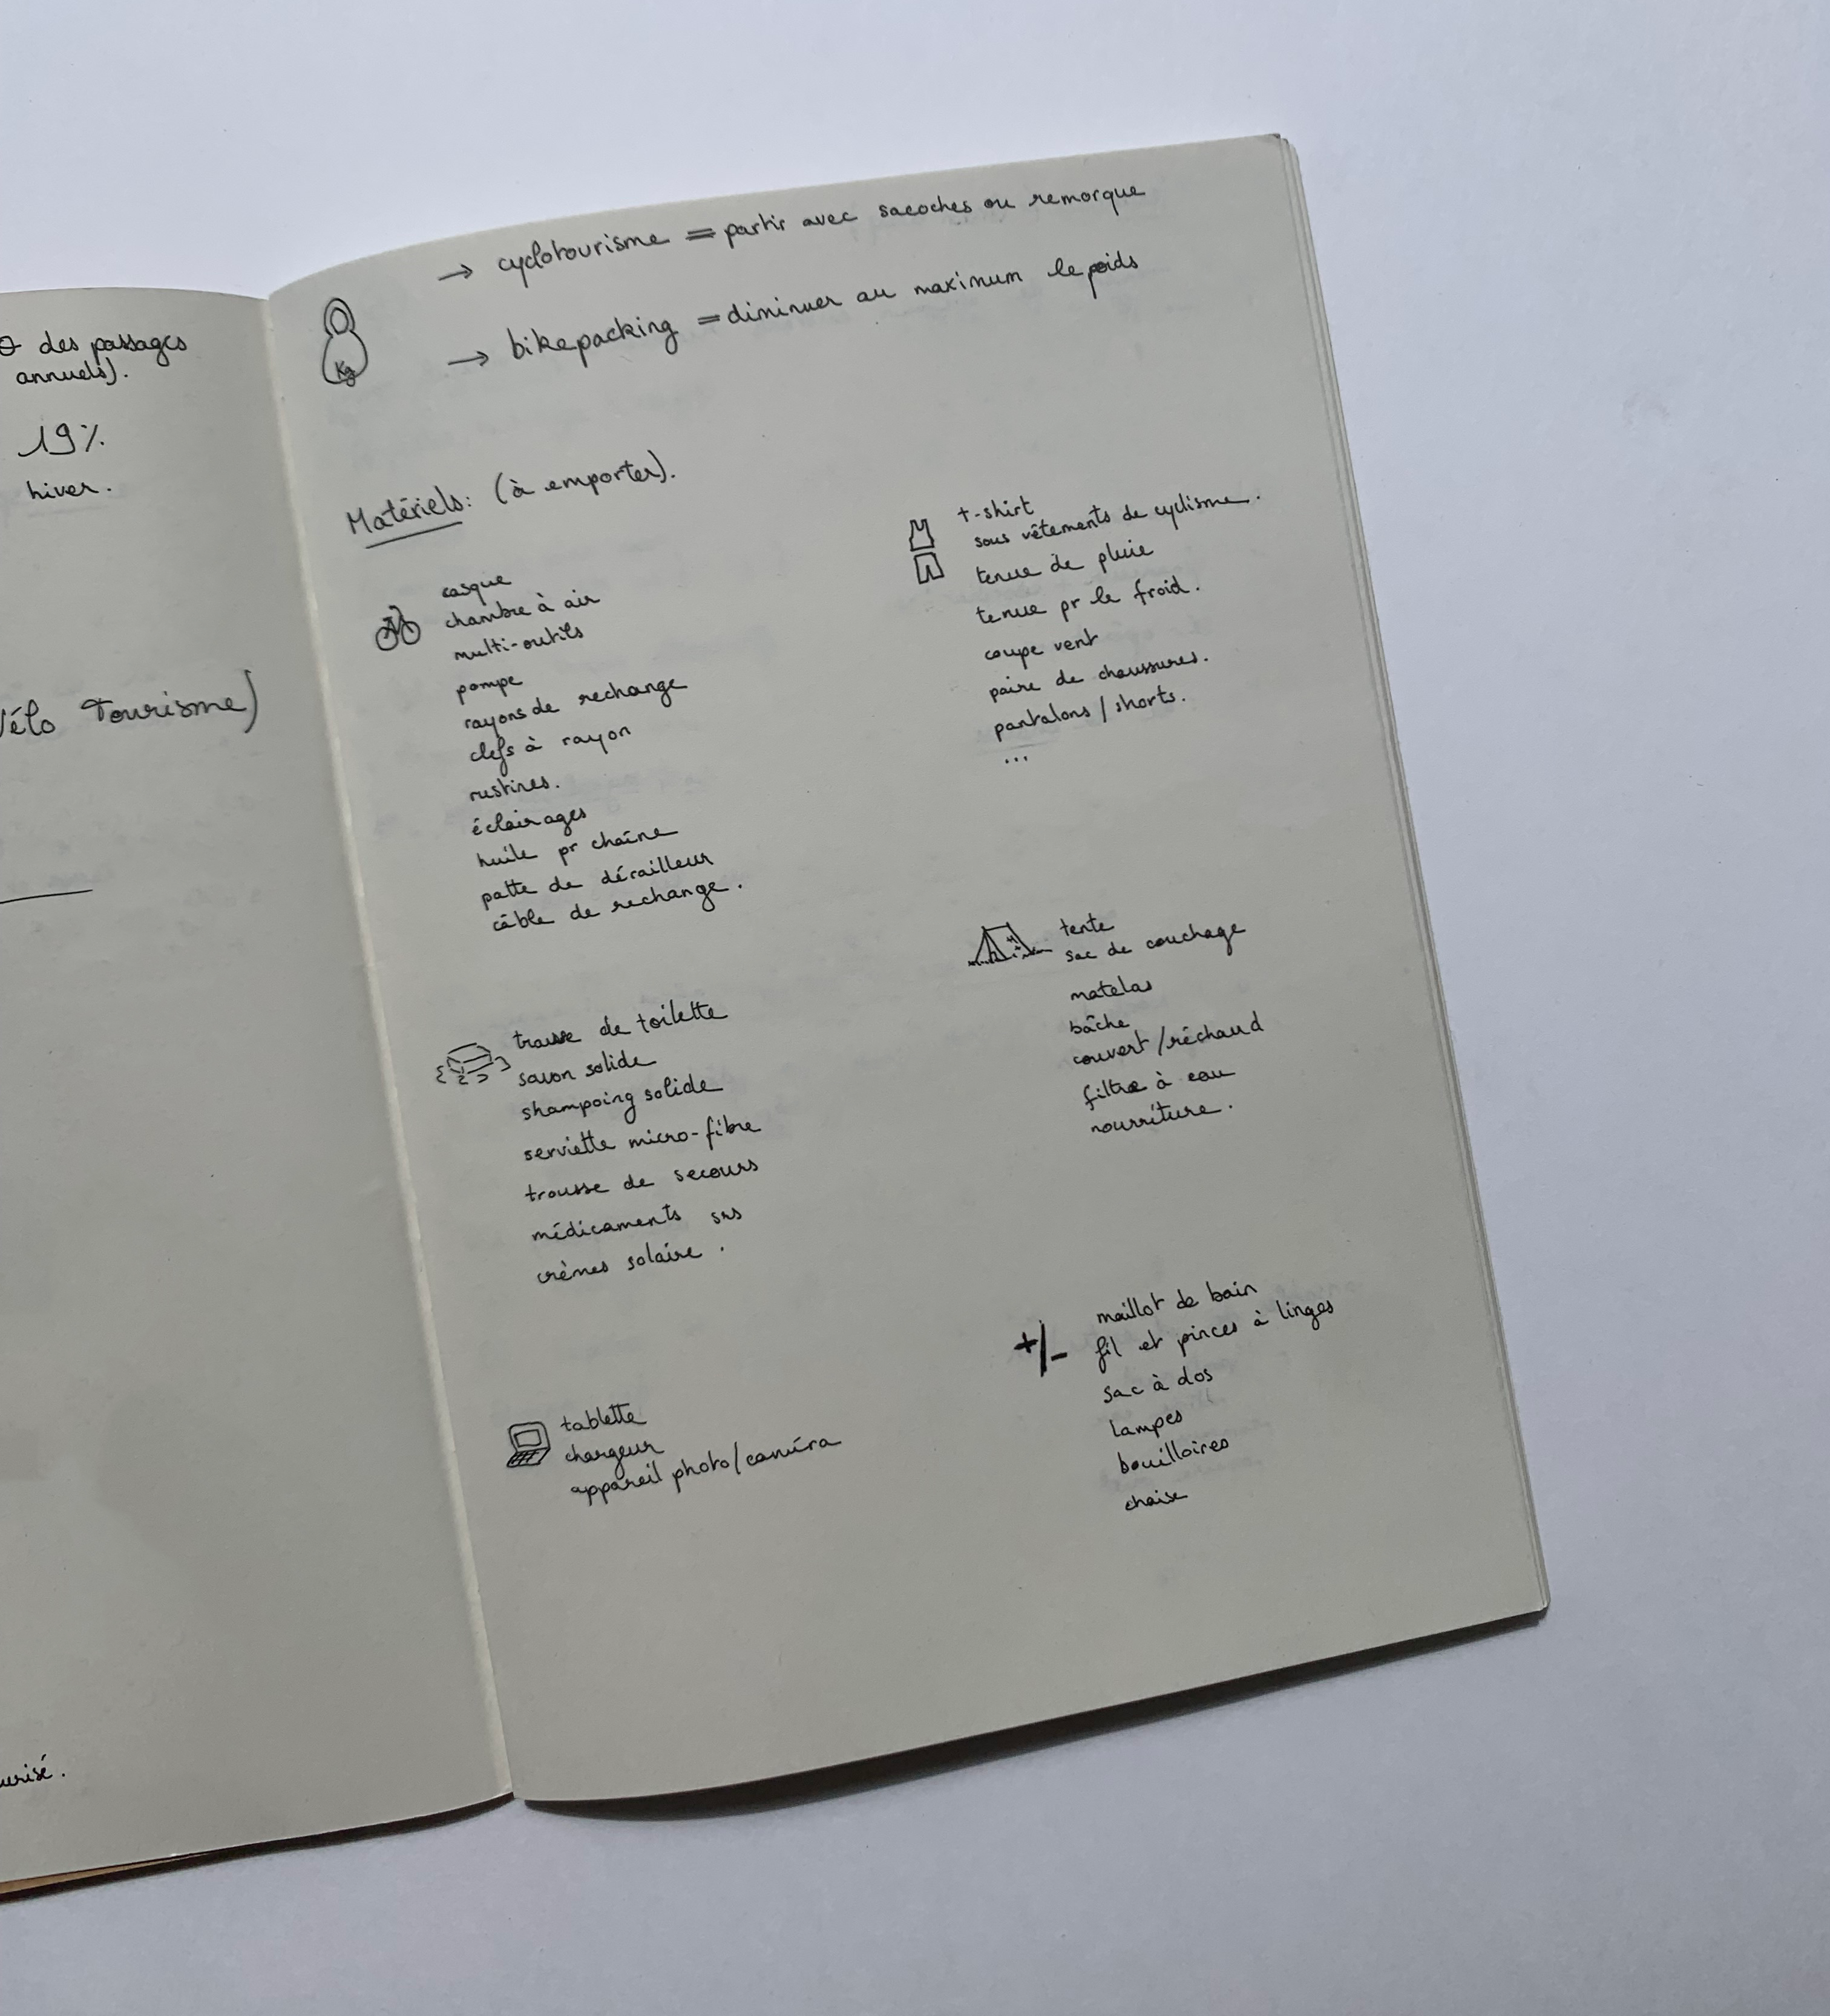 des passages
annuels).
19%
hiver.
Vélo Tourisme)
→ cyclotourisme = partir avec sacoches ou remorque
→ bikepacking = diminuer au maximum le poids
Kg
Matériels: (à emporter).
casque
chambre à air
multi-outils
pompe
rayons de rechange
clefs à rayon
rustines.
éclairages
huile pr chaîne
patte de dérailleur
câble de rechange.
t-shirt
sous vêtements de cyclisme.
tenue de pluie
tenue pr le froid.
coupe vent
paire de chaussures.
pantalons / shorts.
...
trousse de toilette
savon solide
shampoing solide
serviette micro-fibre
trousse de secours
médicaments
crèmes solaire.
tente
sac de couchage
matelas
bâche
couvert / réchaud
filtre à eau
nourriture.
tablette
chargeur
appareil photo / caméra
+/-
maillot de bain
fil et pinces à linges
sac à dos
lampes
bouilloires
chaise